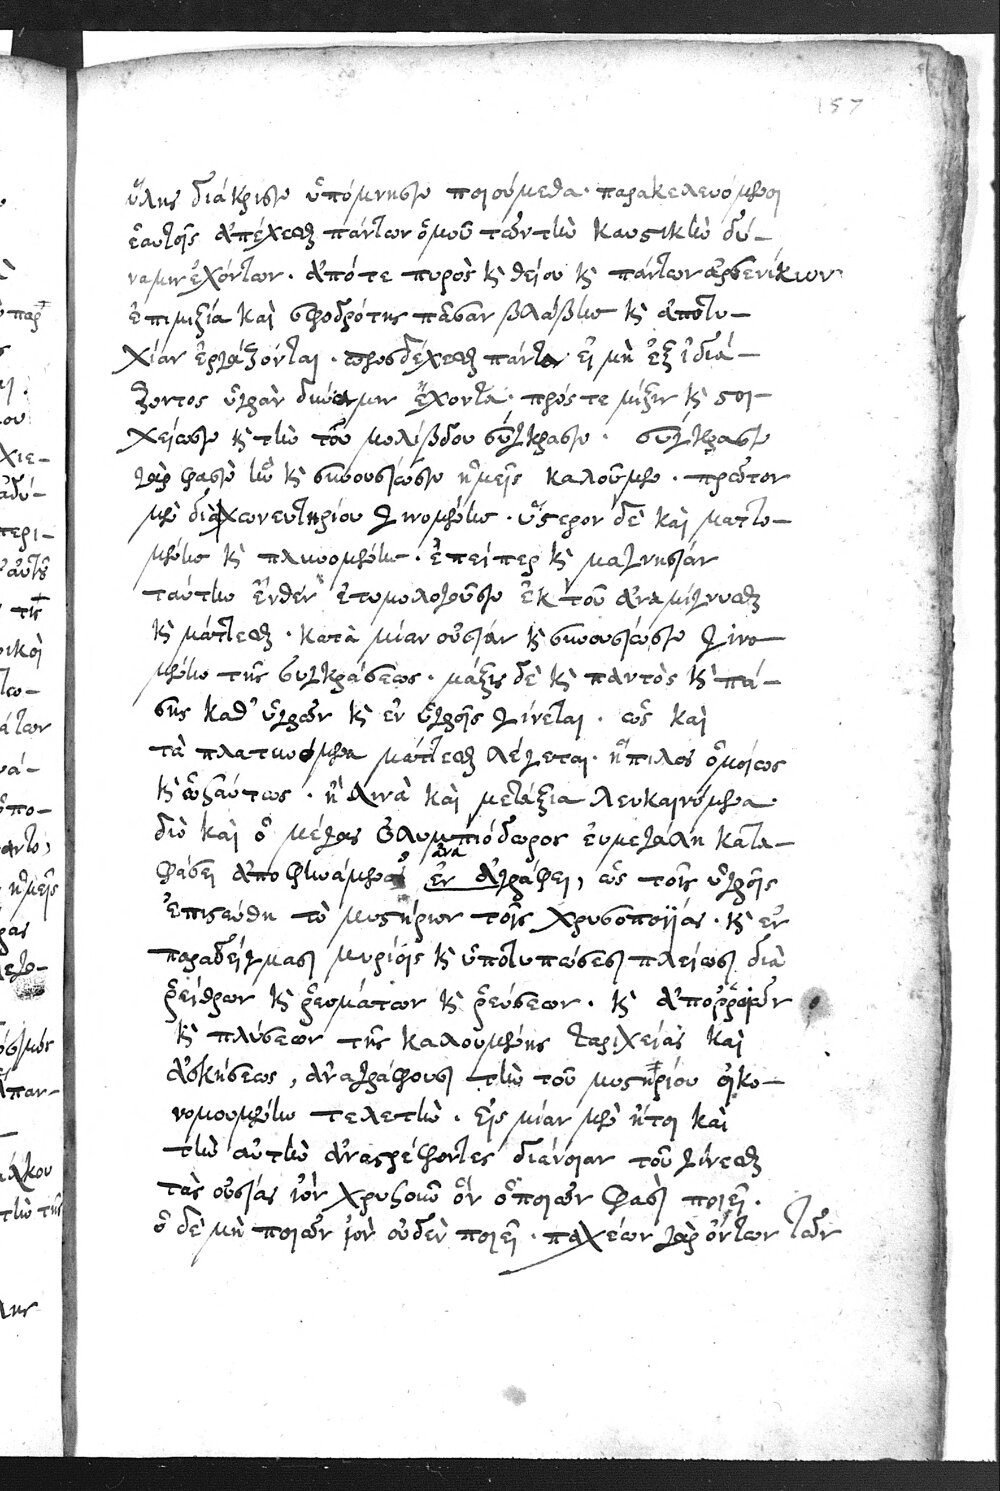 157
ὕλης διάκρισιν ὑπόμνησιν ποιούμεθα· παρακελευόμενοι
ἑαυτοῖς ἀπέχεσθαι πάντων ὁμοῦ τῶν τὴν καυστικὴν δύ-
ναμιν ἐχόντων. ἀπό τε πυρὸς καὶ θείου καὶ πάντων ἀρσενίκιων
ἐπιμιξία καὶ σφοδρότης πᾶσαν βλάβην καὶ ἀποτυ-
χίαν ἐργάζονται. προσδέχεσθαι πάντα εἰ μὴ ἐξ ἰδιά-
ζοντος ὑγρὰν δύναμιν ἔχοντα· πρός τε μίξιν καὶ στοι-
χείωσιν καὶ τὴν τοῦ μολίβδου σύγκρασιν. σύγκρασιν
γάρ φασιν ἣν καὶ συνουσίωσιν ἡμεῖς καλοῦμεν. πρῶτον
μὲν διὰ χωνευτηρίου γινομένην. ὕστερον δὲ καὶ ματτο-
μένην καὶ πλυνομένην. ἐπείπερ καὶ μαγνησίαν
ταύτην ἔνθεν ἐτυμολογοῦσιν ἐκ τοῦ ἀναμίγνυσθαι
καὶ μάττεσθαι. κατὰ μίαν οὐσίαν καὶ συνουσίωσιν γινο-
μένην τῆς συγκράσεως. μάξις δὲ καὶ παντὸς καὶ πά-
σης καθ' ὑγρῶν καὶ ἐν ὑγροῖς γίνεται. ὡς καὶ
τὰ πλατυνόμενα μάττεσθαι λέγεται. ἢ πῖλος ὁμοίως
καὶ ὡσαύτως. ἢ λινὰ καὶ μετάξια λευκαινόμενα
διὸ καὶ ὁ μέγας Ὀλυμπιόδωρος εὐμεγάλη κατα-
φάσει ἀποφηνάμενος ἐν ἀνα γράφει, ὡς τοῖς ὑγροῖς
ἐπιστεύθη τὸ μυστήριον τῆς χρυσοποιΐας. καὶ ἐν
παραδείγμασι μυρίοις καὶ ὑποτυπώσεσι πλείωσι διὰ
ῥείθρων καὶ ῥευμάτων καὶ ῥεύσεων. καὶ ἀπορροιῶν
καὶ πλύσεων τῆς καλουμένης ταριχείας καὶ
ἀσκήσεως, ἀναγράφουσι τὴν τοῦ μυστηρίου οἰκο-
νομουμένην τελετὴν. εἰς μίαν μὲν ἤτοι καὶ
τὴν αὐτὴν ἀναστρέφοντες διάνοιαν τοῦ γίνεσθαι
τὰς οὐσίας ἰὸν χρυσοῦ ὃν ὁ ποιῶν φασὶ ποιεῖ.
ὁ δὲ μὴ ποιῶν ἰὸν οὐδὲν ποιεῖ. παχέων γὰρ ὄντων τῶν